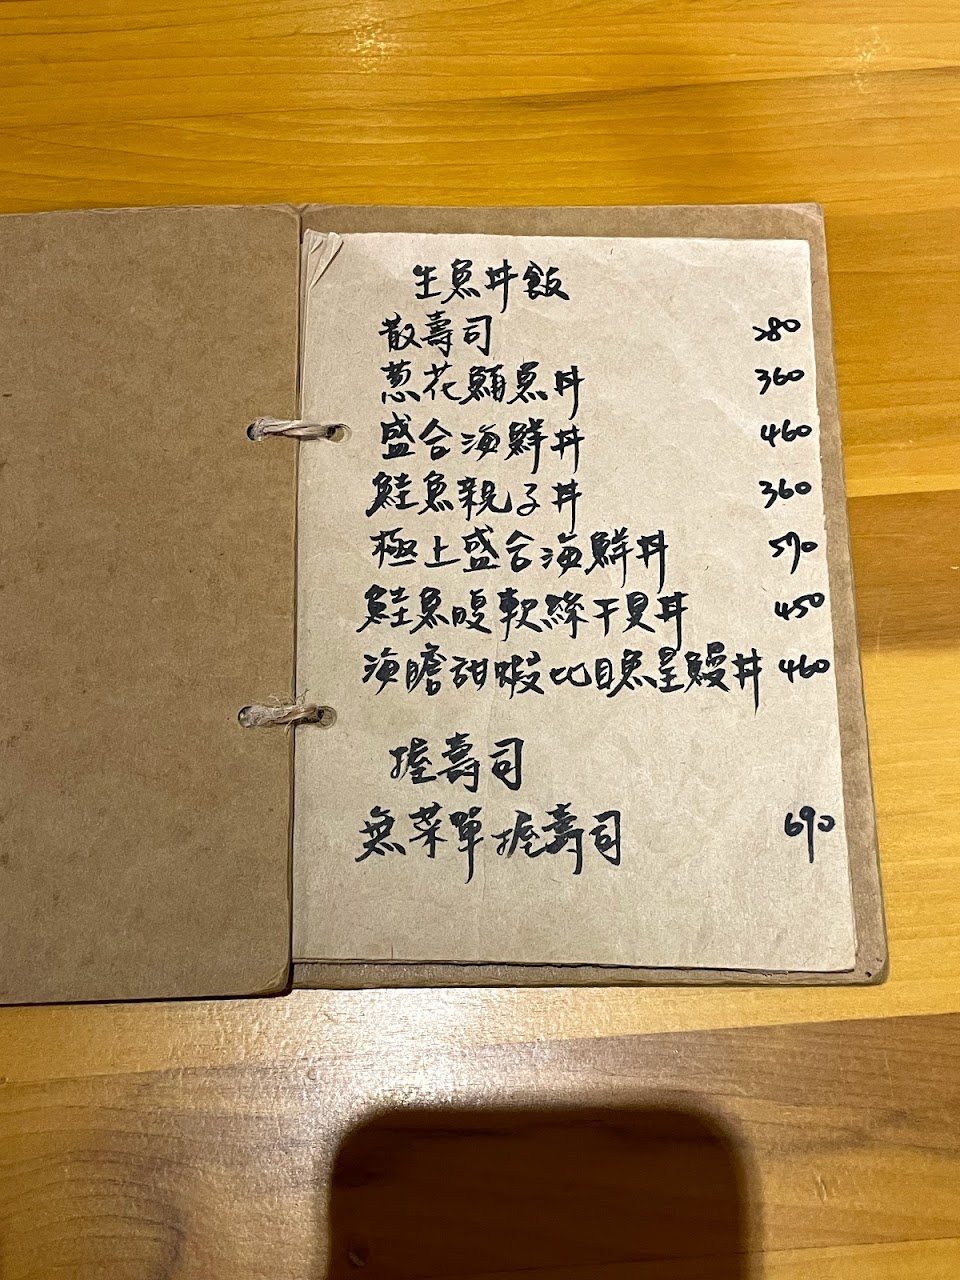 生魚丼飯
散壽司 280
葱花鮪魚丼 360
盛合海鮮丼 460
鮭魚親子丼 360
極上盛合海鮮丼 570
鮭魚腹軟絲干貝丼 450
海膽甜蝦比目魚星鰻丼 460
握壽司
無菜單握壽司 690